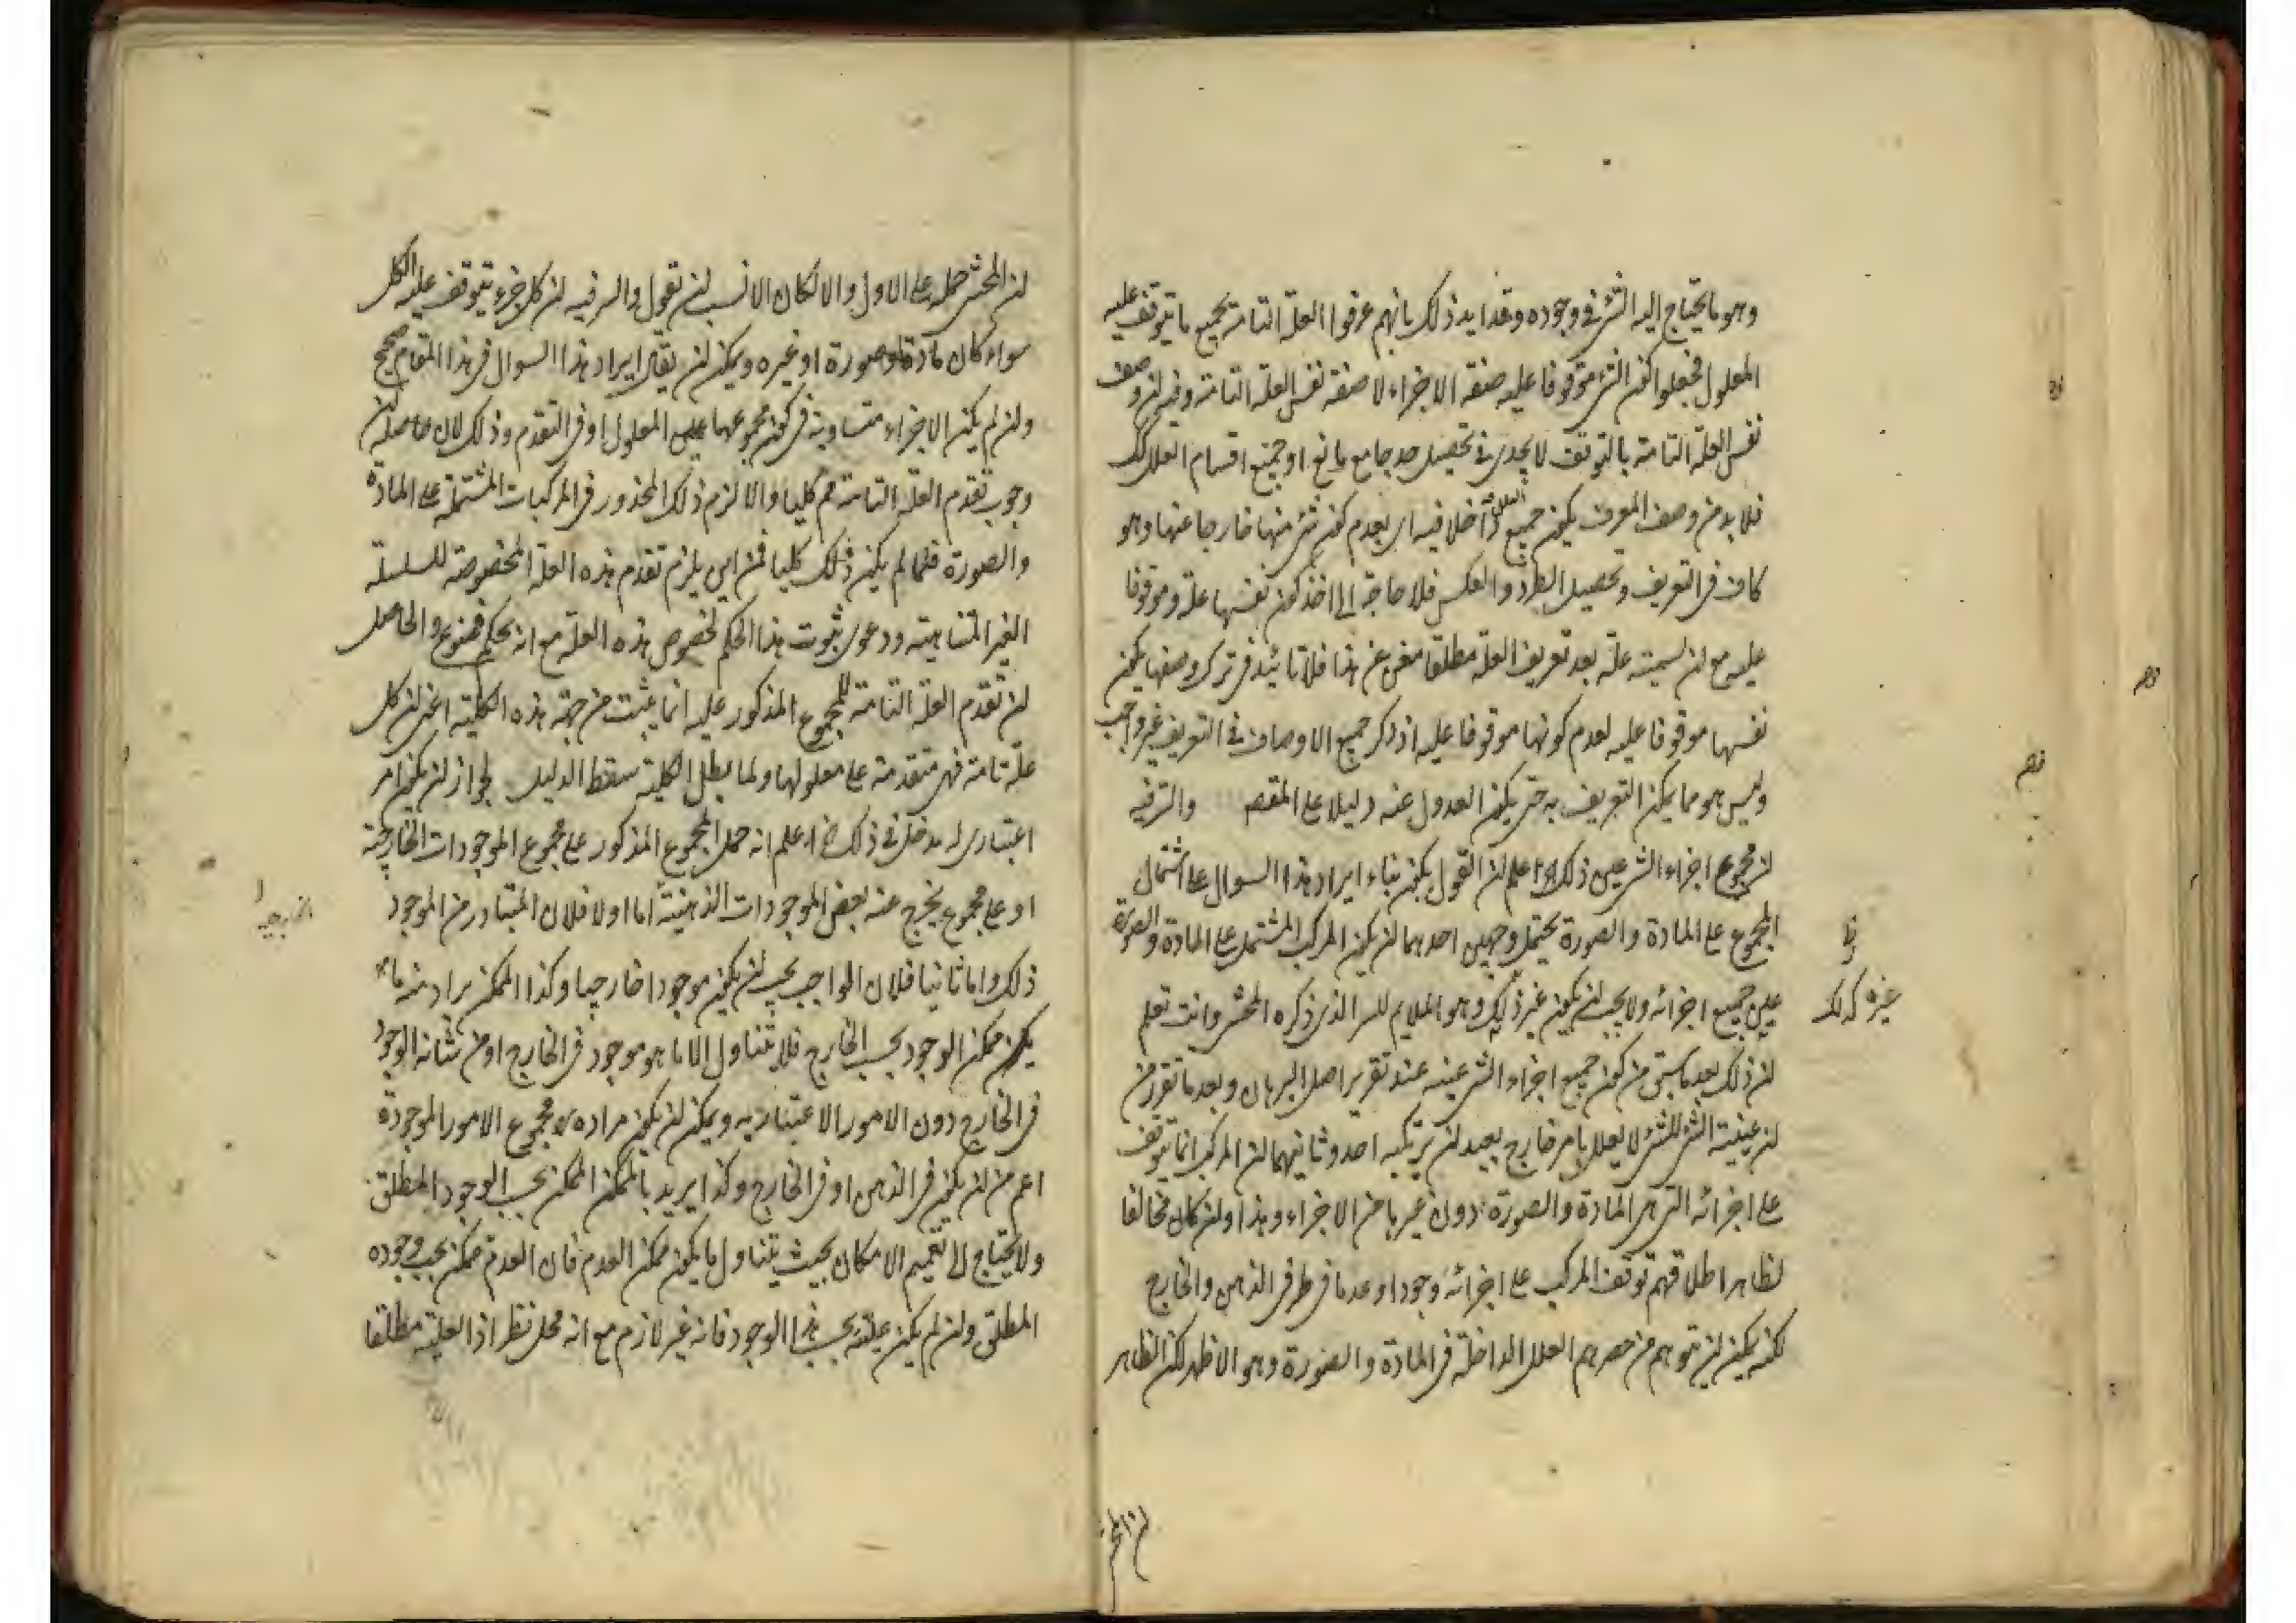 وهو ما يحتاج اليه الشئ في وجوده وقد ايد ذلك بانهم عرفوا العلة التامة بجميع ما يتوقف عليه
المعلول فجعلوا كون الشئ موقوفا عليه صفة الاجزاء لا صفة نفس العلة التامة وفيه لن وصف
نفس العلة التامة بالتوقف لا يجدى في تحصيل حد جامع مانع او جميع اقسام العلل كك
فلا بد من وصف المعرف بكون جميع العلل داخلا فيه اى بعدم كون شئ منها خارجا عنها وهو
كاف في التعريف وتحصيل الطرد والعكس فلا حاجة الى اخذ كون نفسها علة وموقوفا
عليه مع لن تسميته علة بعد تعريف العلة مطلقا مغن عن هذا فلا تائيد في ترك وصفها بكون
نفسها موقوفا عليه لعدم كونها موقوفا عليه اذ ذكر جميع الاوصاف في التعريف غير واجب
وليس هو مما يمكن التعريف به حتى يكون العدول عنه دليلا على المقصم والسر فيه
لن مجموع اجزاء الشئ عين ذلك اه اعلم لن القول يكون بناء ايراد هذا السوال على اشتمال
المجموع على المادة والصورة يحتمل وجهين احدهما لن يكون المركب المشتمل على المادة والصورة
عين جميع اجزائه ولا يجب لن يكون غير ذلك وهو الملايم للسر الذى ذكره المحشى وانت تعلم
غيره كذلك
لن ذلك بعد ما سبق من كون جميع اجزاء الشئ عينه عند تقرير اصل البرهان وبعد ما تقرر من
لن عينية الشئ للشئ لا يعلل بامر خارج بعيد لن يرتكبه احد وثانيهما لن المركب انما يتوقف
على اجزائه التى هى المادة والصورة دون غيرها من الاجزاء وهذا ولن كان مخالفا
لظاهر اطلاقهم توقف المركب على اجزائه وجودا وعدما في ظرفى الذهن والخارج
لكنه يمكن لن يتوهم من حصرهم العلل الداخلة في المادة والصورة وهو الاظهر لكن الظاهر
لن المحشى
لن المحشى حمله على الاول والا لكان الانسب لن تقول والسر فيه لن كل جزء يتوقف عليه الكل
سواء كان مادة او صورة او غيره ويمكن لن يقال ايراد هذا السوال في هذا المقام صحيح
ولن لم يكن الاجزاء متساوية في كون مجموعها عين المعلول او في التقدم وذلك لان حاصله لن
وجوب تقدم العلة التامة مم كليا والا لزم ذلك المحذور في المركبات المشتملة على المادة
والصورة فلما لم يكن ذلك كليا فمن اين يلزم تقدم هذه العلة المخصوصة للسلسلة
الغير المتناهية ودعوى ثبوت هذا الحكم لخصوص هذه العلة مع انه تحكم ممنوع والحاصل
لن تقدم العلة التامة للمجموع المذكور عليه انما يثبت من جهة هذه الكلية اعنى لن كل
علة تامة فهى متقدمة على معلولها ولما بطل الكلية سقط الدليل لجواز لن يكون امر
اعتبارى له مدخل في ذلك اعلم انه حمل المجموع المذكور على مجموع الموجودات الخارجية
او على مجموع يخرج عنه بعض الموجودات الذهنية اما اولا فلان المتبادر من الموجود
الخارجية
ذلك واما ثانيا فلان الواجب يجب لن يكون موجودا خارجيا وكذا الممكن يراد منه ما
يكون ممكن الوجود بحسب الخارج فلا يتناول الا ما هو موجود في الخارج او من شانه الوجود
في الخارج دون الامور الاعتبارية ويمكن لن يكون مراده مجموع الامور الموجودة
اعم من لن يكون في الذهن او في الخارج وكذا يريد بالممكن الممكن بحسب الوجود المطلق
ولا يحتاج الى تعميم الامكان بحيث يتناول ما يكون ممكن العدم فان العدم ممكن بحسب وجوده
المطلق ولن لم يكن علته بحسب هذا الوجود فانه غير لازم مع انه محل نظر اذ العلية مطلقا